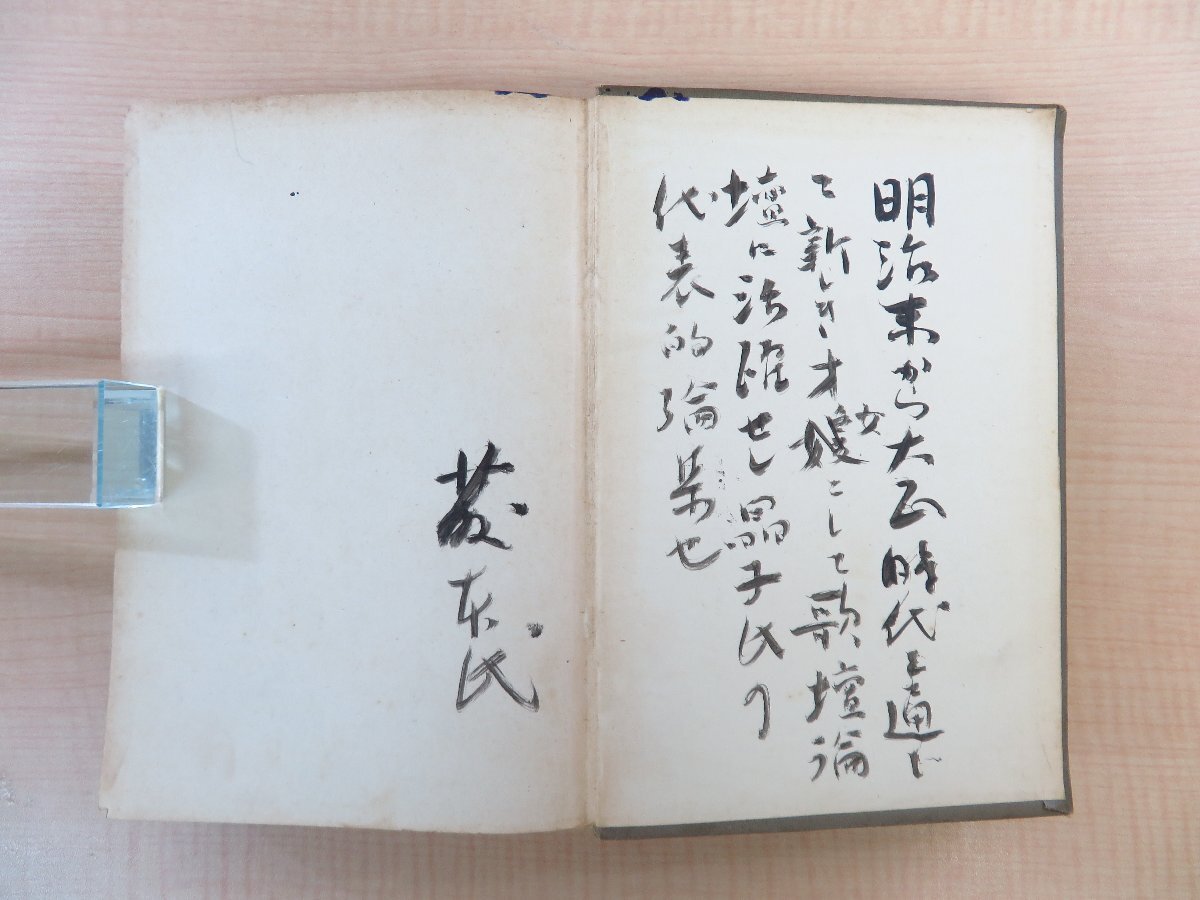 明治末から大正時代を通じ
て新しき才媛女として歌壇論
壇に活躍せし晶子氏の
代表的論集也
藤本氏